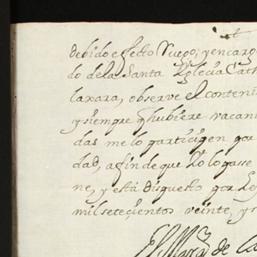 debido efecto Ruego, y encarg
do dela Santa Yglecia Cath
laxara, observe el conteni
y siempre q hubiere vacan
das me lo participen por
dad, afin de que Yo lo passe
ne, y está dispuesto por Ley
mil setecientos veinte, y
de